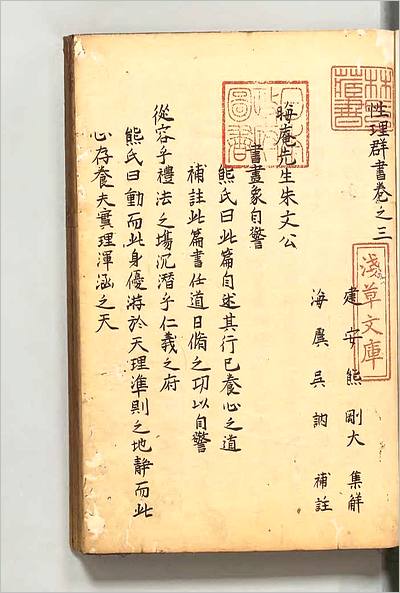 林氏藏書
性理群書卷之三
淺草文庫
建安熊剛大集觧
海虞吳訥補註
日本政府圖書
晦庵先生朱文公
書畫象自警
熊氏曰此篇自述其行已養心之道
補註此篇書任道日脩之功以自警
從容乎禮法之場沉潛乎仁義之府
熊氏曰動而此身優游於天理準則之地静而此
心存養夫實理渾涵之天